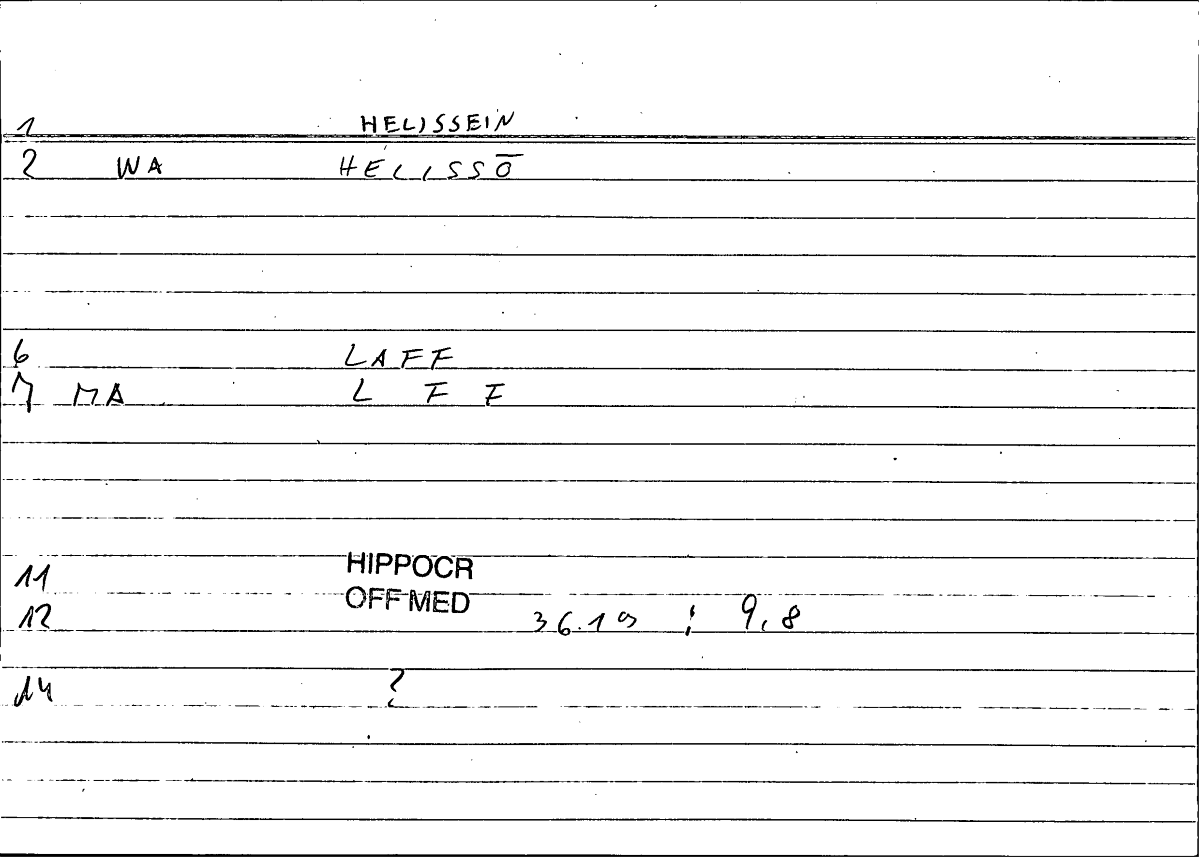 1 HELISSEIN
2 WA HELISSŌ
6 LAFF
7 MA L F F
11 HIPPOCR
OFF MED
12 36.19 ; 9,8
14 ?